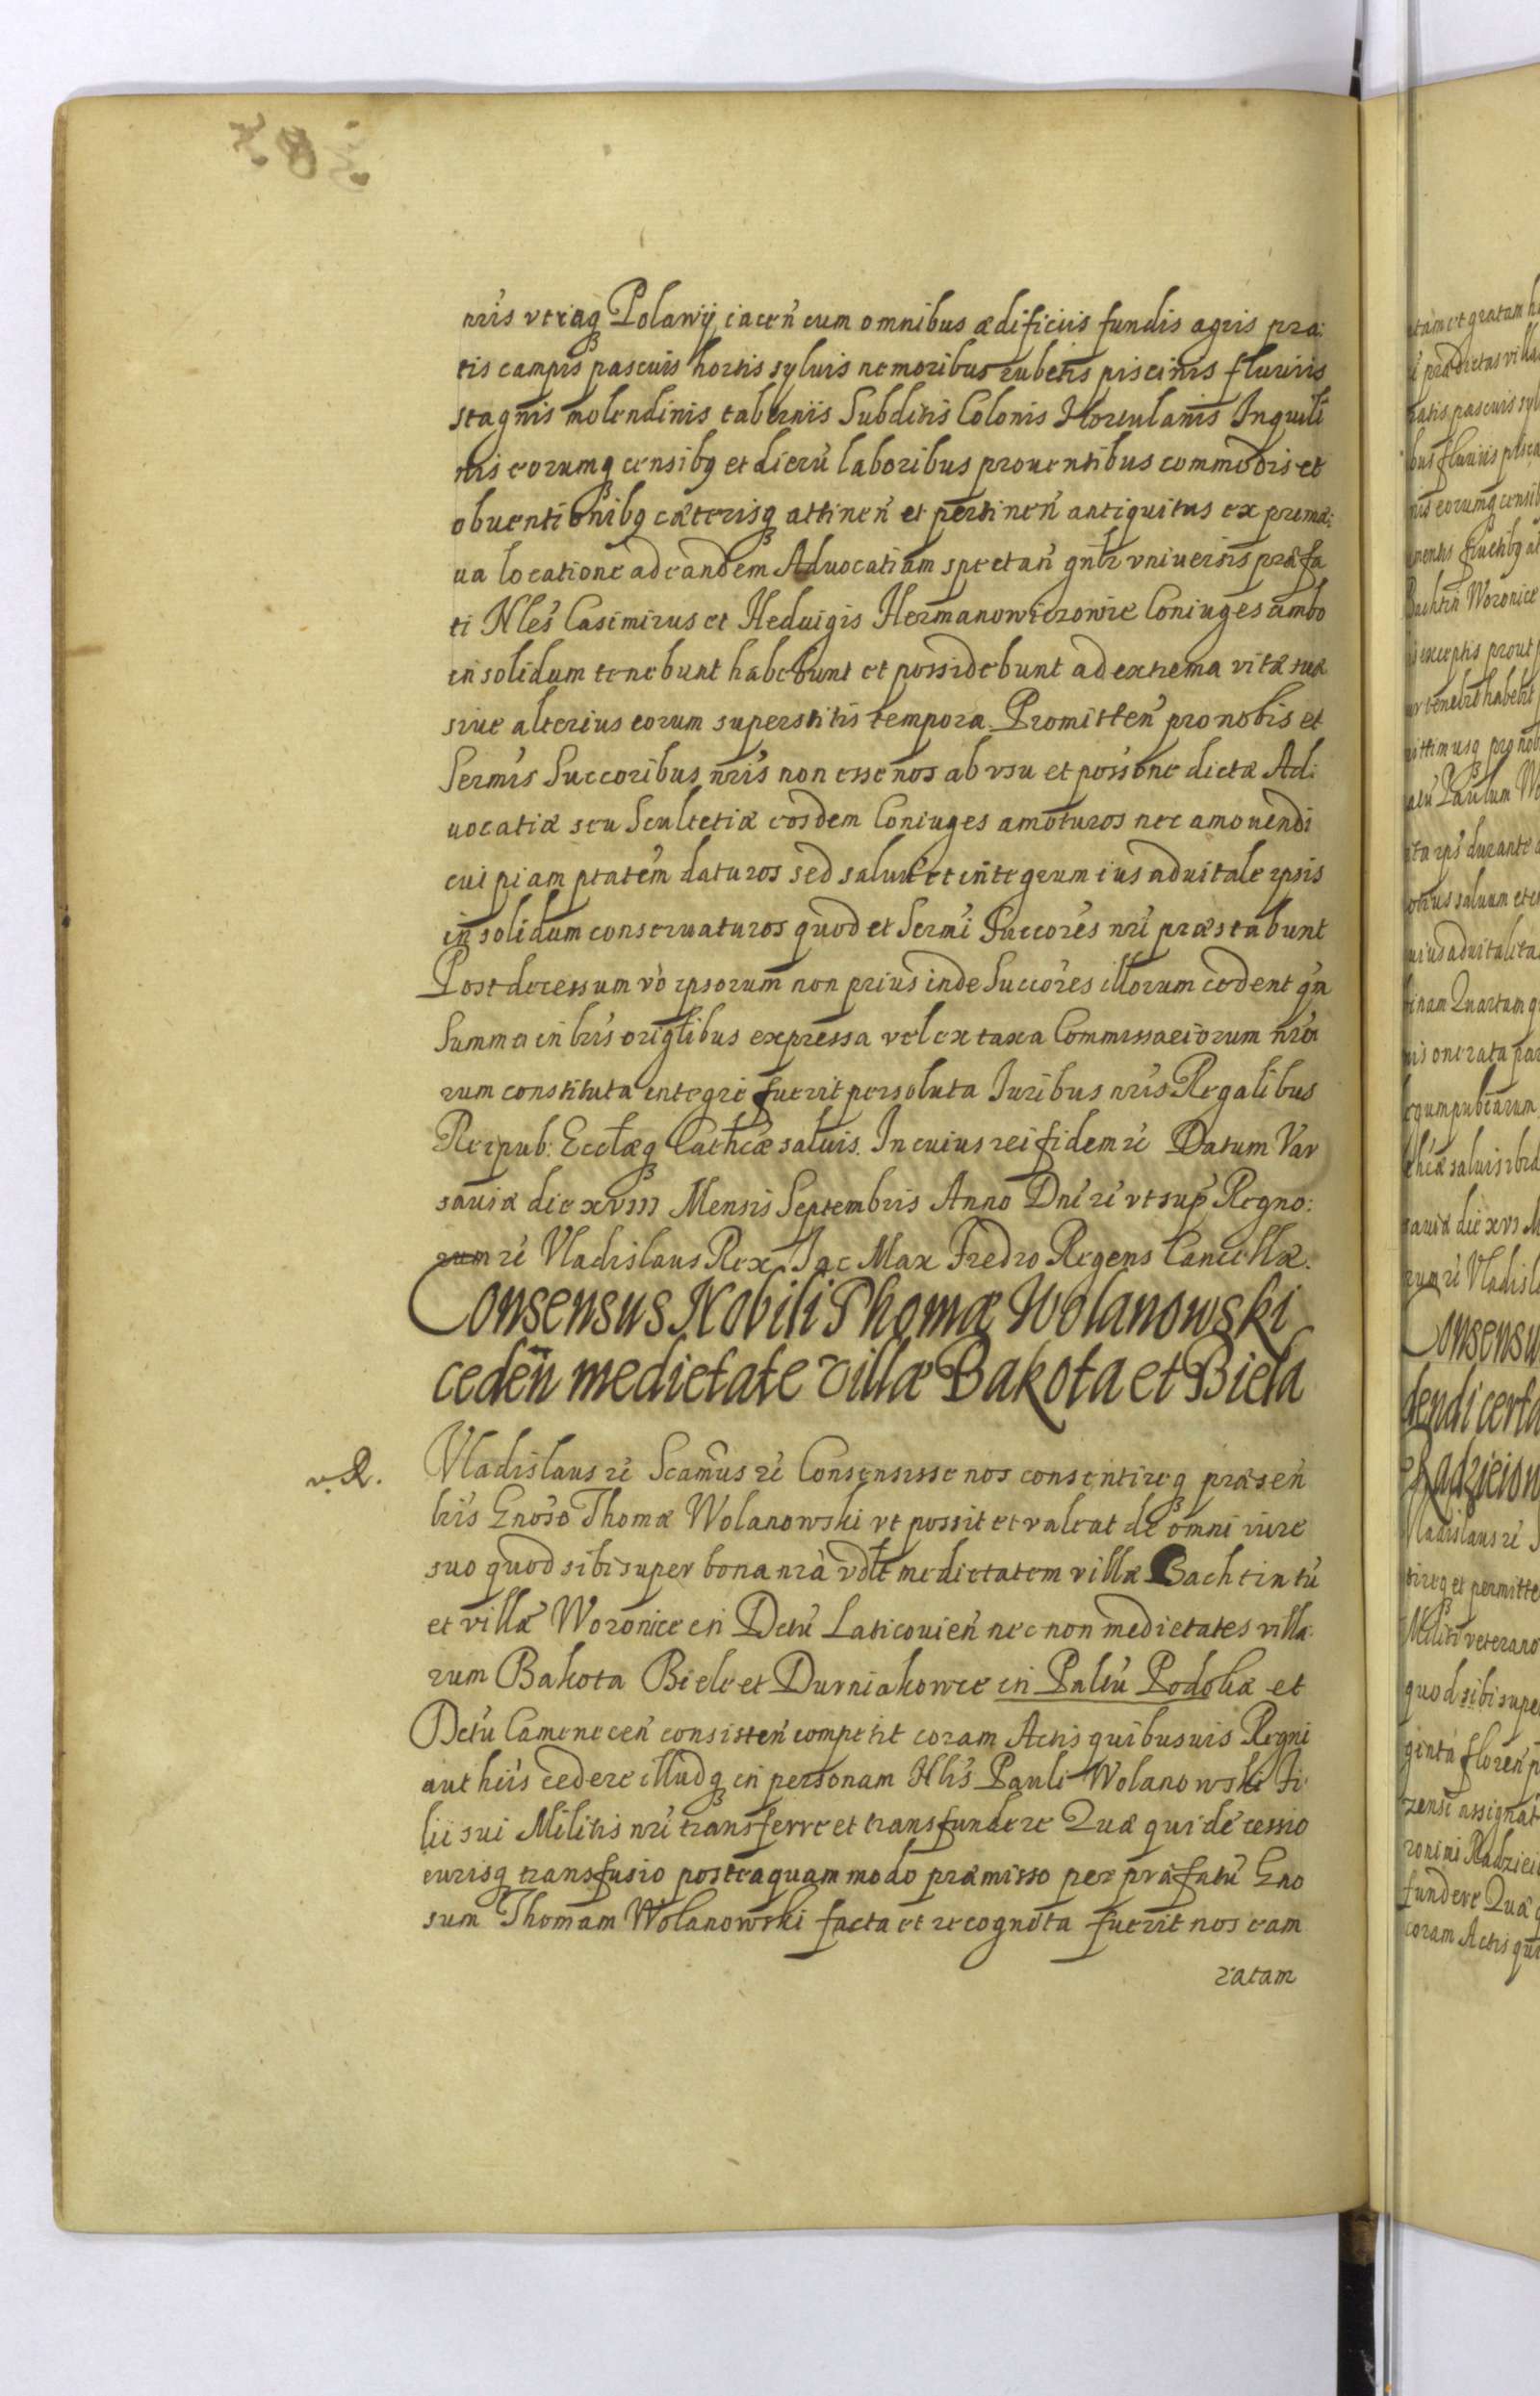 nr̃is vtriaq3 Polawij iacen̄ cum omnibus ædificiis fundis agris pra:
tis campis pascuis hortis syluis nemoribus rubetis piscinis fluviis
stagnis molendinis tabernis Subditis Colonis Hortulanis Inquili
nis eorumq3 censib9 et dierū laboribus prouentibus commodis et
obuentionib9 cæterisq3 attinen̄ et pertinen̄ antiquitus ex prima:
ua locatione ad eandem Aduocatiam spectan̄ gn̄lr vniuersis præfa
ti Nles Casimirus et Heduigis Hermanowiczowie Coniuges ambo
in solidum tenebunt habebunt et possidebunt ad extrema vitæ suæ
siue alterius eorum superstitis tempora. Promitten̄ pro nobis et
Sermis Succoribus nr̃is non esse nos ab vsu et poss̃one dictæ Ad:
uocatiæ seu Scultetiæ eosdem Coniuges amoturos nec amouendi
cuipiam ptatem daturos sed saluū et integrum ius aduitale ipsis
in solidum conseruaturos quod et Sermi Succores nr̃i præstabunt
Post decessum vo ipsorum non prius inde Succores illorum cedent qm̄
Summa in lr̃is origlibus expressa vel ex taxa Commissariorum nr̃o
rum constituta integre fuerit persoluta Iuribus nr̃is Regalibus
Reipub: Ecctæq3 Cathcæ saluis. In cuius rei fidem zc̄ Datum Var
sauiæ die xviii Mensis Septembris Anno Dn̄i zc̄ vt sup̄ Regno:
rum zc̄ Vladislaus Rex. Jac Max Fredro Regens Cancellæ.
Consensus Nobili Thomæ Wolanowski
ceden̄ medietate villæ Bakota et Biela
v. R.
Vladislaus zc̄ Scamus zc̄ Consensisse nos consentireq3 præsen̄
lr̃is Gnoso Thomæ Wolanowski vt possit et valeat de omni iure
suo quod sibi super bona nr̃a vdlt medietatem villæ Bachtin tū
et villæ Woronice in Dctū Laticouien̄ nec non medietates villa:
rum Bakota Biele et Durniakowce in Paltū Podoliæ et
Dctū Camenecen̄ consisten̄ competit coram Actis quibusuis Regni
aut hiis cedere illudq3 in personam Nlis Pauli Wolanowski Fi
lii sui Militis nr̃i transferre et transfundere Quæ quidē cessio
iurisq3 transfusio posteaquam modo præmisso per præfatū Gno
sum Thomam Wolanowski facta et recognita fuerit nos eam
ratam